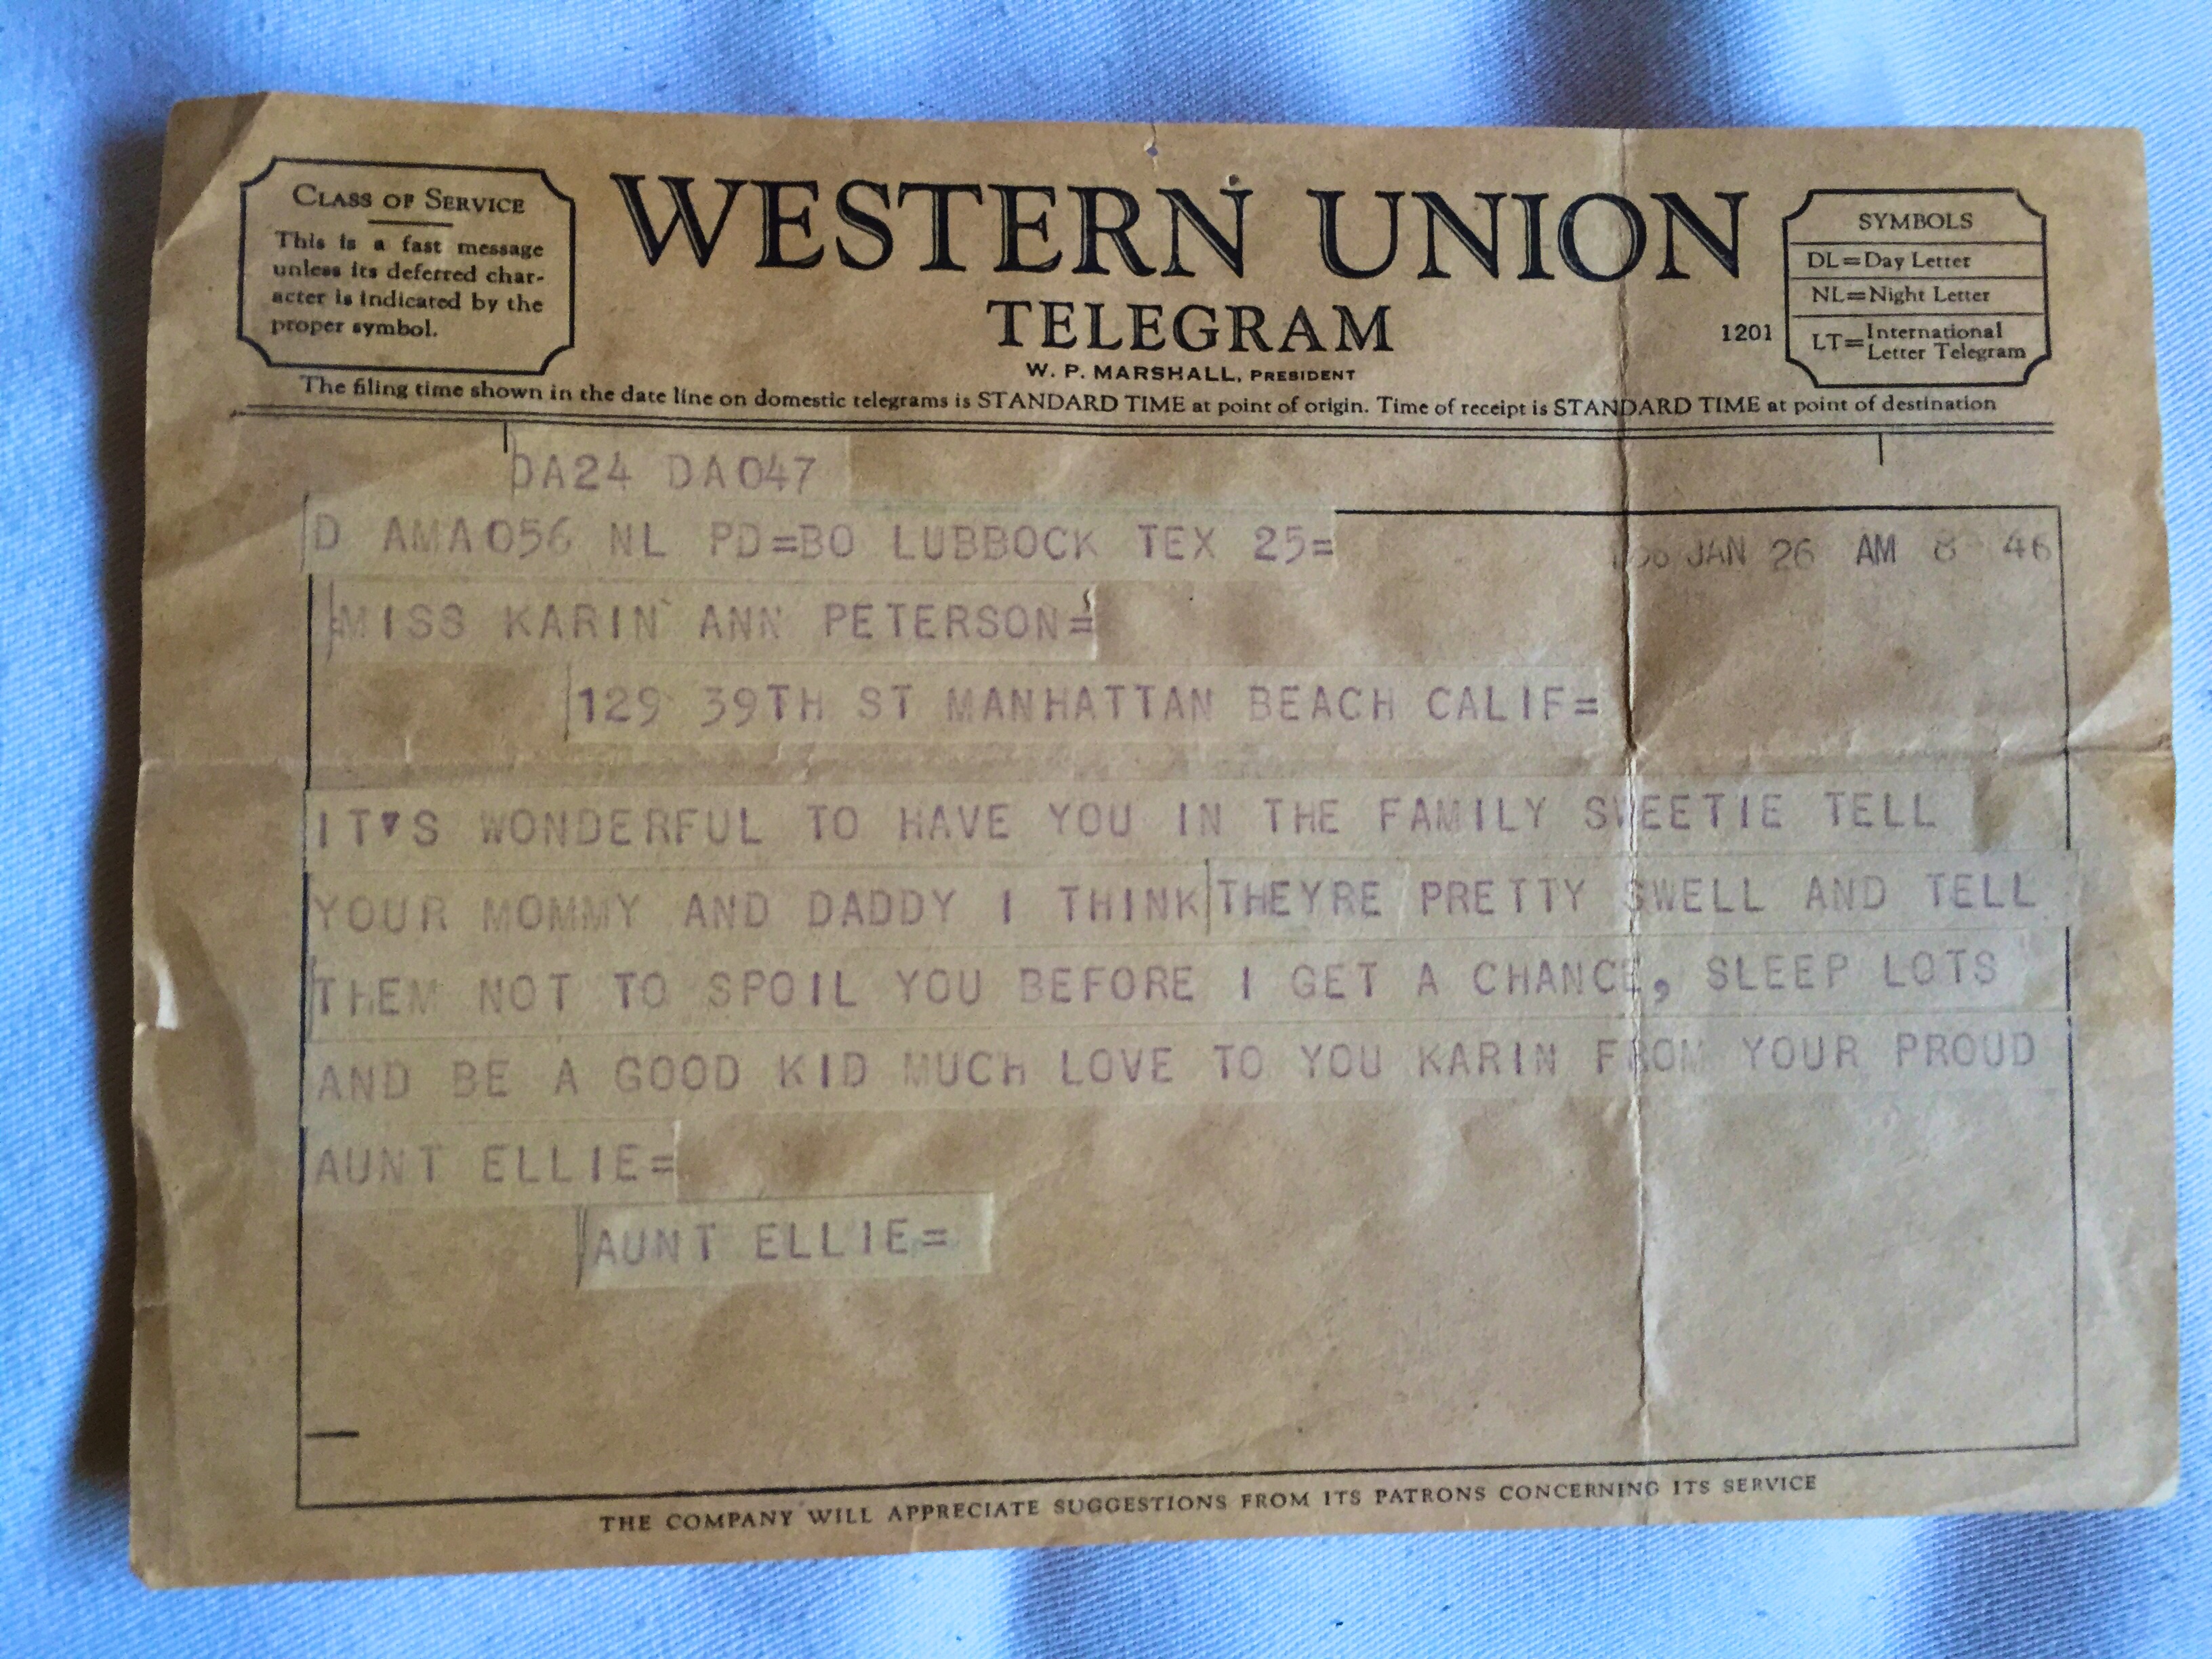 CLASS OF SERVICE
This is a fast message
unless its deferred char-
acter is indicated by the
proper symbol.
WESTERN UNION
TELEGRAM
W. P. MARSHALL, PRESIDENT
1201
SYMBOLS
DL=Day Letter
NL=Night Letter
LT=International Letter Telegram
The filing time shown in the date line on domestic telegrams is STANDARD TIME at point of origin. Time of receipt is STANDARD TIME at point of destination
DA24 DA047
D AMA056 NL PD=BO LUBBOCK TEX 25=
JAN 26 AM 8 46
MISS KARIN ANN PETERSON=
129 39TH ST MANHATTAN BEACH CALIF=
IT'S WONDERFUL TO HAVE YOU IN THE FAMILY SWEETIE TELL
YOUR MOMMY AND DADDY I THINK THEYRE PRETTY SWELL AND TELL
THEM NOT TO SPOIL YOU BEFORE I GET A CHANCE, SLEEP LOTS
AND BE A GOOD KID MUCH LOVE TO YOU KARIN FROM YOUR PROUD
AUNT ELLIE=
AUNT ELLIE=
THE COMPANY WILL APPRECIATE SUGGESTIONS FROM ITS PATRONS CONCERNING ITS SERVICE